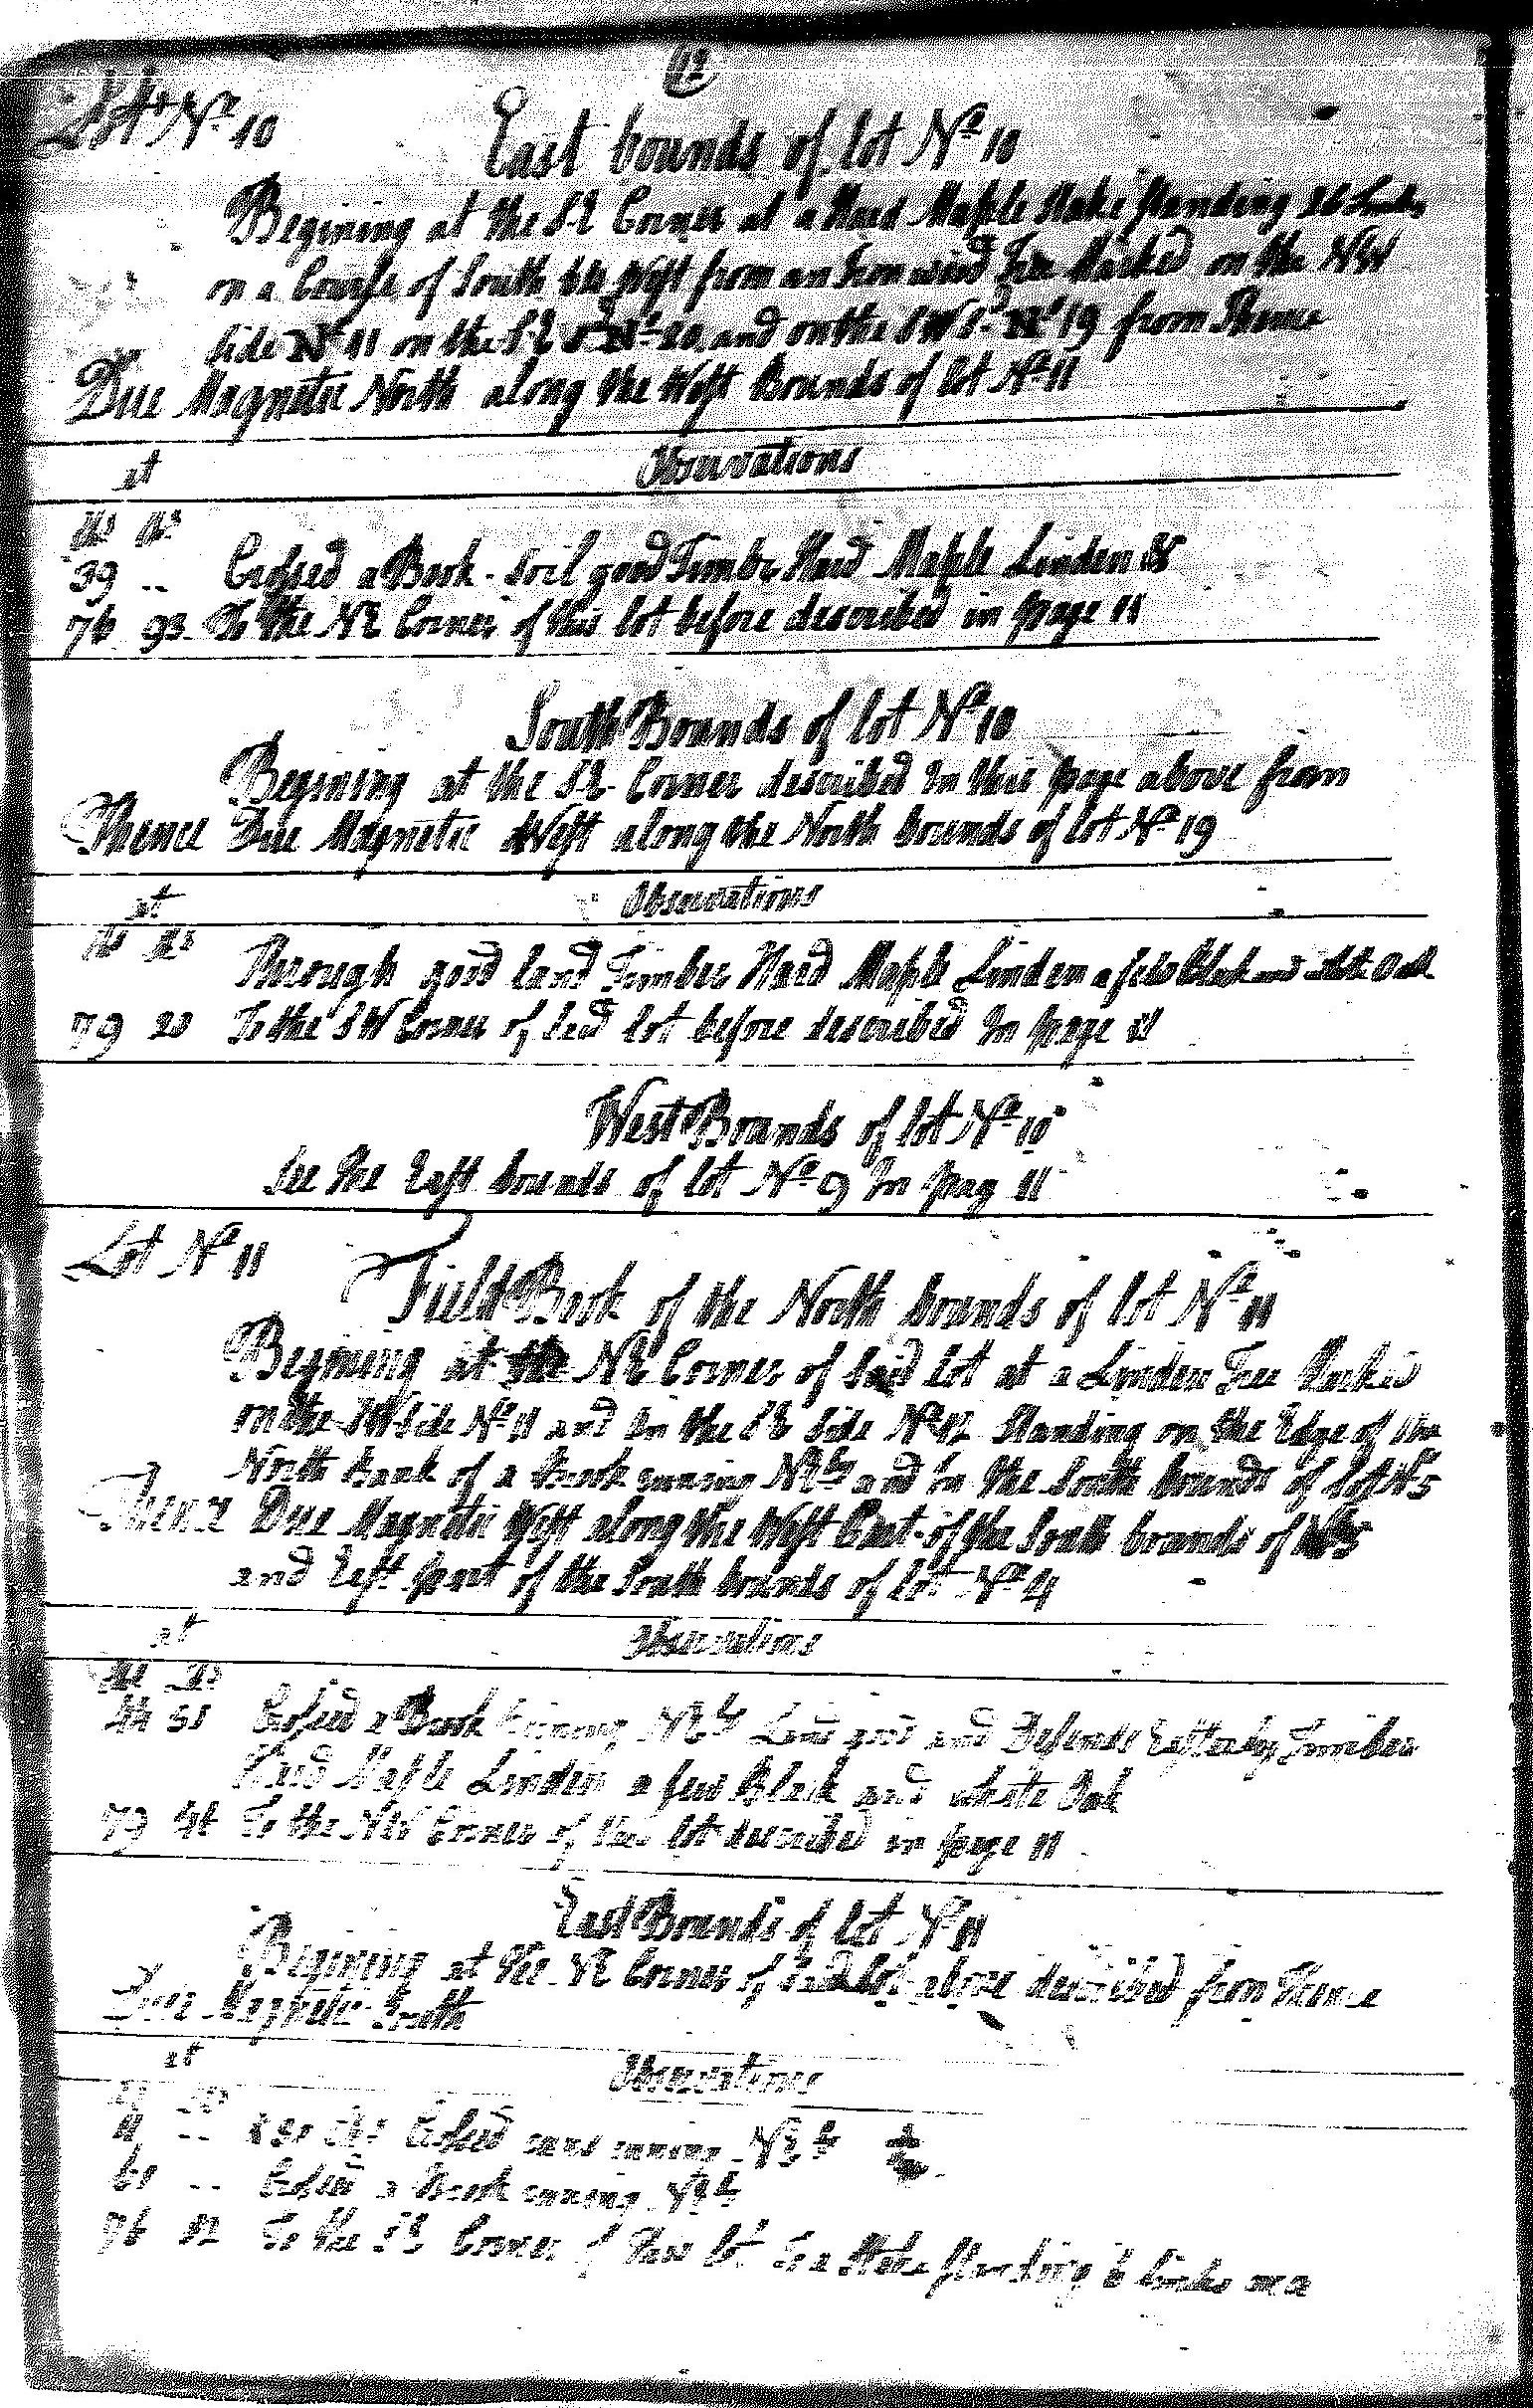 12
Lot Nº 10
East bounds of lot Nº 10
Begining at the SE Corner at a Hard Maple Stake standing Links
on a Course of South West from an Iron wood Tree Marked on the NW
side Nº 11 on the SE Sº Nº 20 and on the SW Sº Nº 19 from Thence
Due Magnetic North along the West Bounds of lot Nº 11
at Observations
39 .. Crossed a Brook. Soil good Timbr Hard Maple Linden &
76 93 To the NE Corner of this lot before described in page 11
South Bounds of lot Nº 10
Begining at the SE Corner described In this page above from
Thence Due Magnetic West along the North bounds of lot Nº 19
at Observations
Through good land Timber Hard Maple Linden a few Black and white Oak
79 20 To the SW Corner of Said lot before described In page 11
West Bounds of lot Nº 10
See the East bounds of lot Nº 9 In pag 11
Lot Nº 11
Field Book of the North bounds of lot Nº 11
Begining at the NE Corner of Said lot at a Linden Tree Marked
on the SW Side Nº 11 and on the SE Side Nº 12 Standing on the Edge of the
North bank of a brook runing NEly and In the South bounds of lot Nº 5
Thence Due Magnetic West along the West Part of the South bounds of Nº 5
and East part of the South bounds of lot Nº 4
at Observations
44 51 Crossed a Brook runing NEly Land good and Desends Easterly Timber
Hard Maple Linden a few Black and white Oak
79 44 To the NW Corner of this lot described in page 11
East Bounds of lot Nº 11
Begining at the NE Corner of Said lot above described from Thence
Due Magnetic South
at Observations
11 .. Crossed same runing NEly
61 .. Crossed a Brook runing NEly
76 82 To the SE Corner of this lot To a Stake standing 6 Links on a